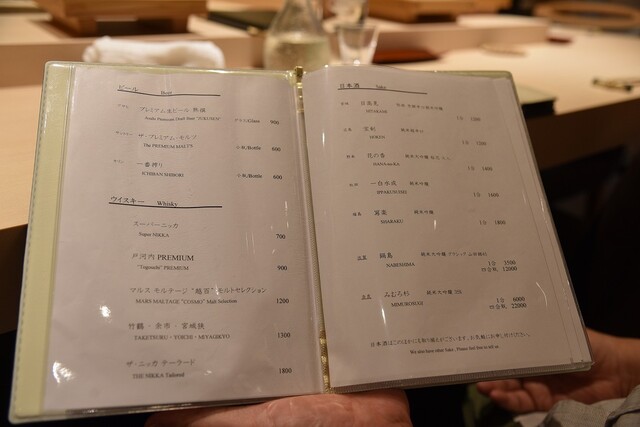 ビール Beer
プレミアム生ビール 熟撰
Asahi Premium Draft Beer "JUKUSEN"
Glass 900
ザ・プレミアム・モルツ
The PREMIUM MALT'S
小瓶/Bottle 800
一番搾り
ICHIBAN SHIBORI
小瓶/Bottle 600
ウイスキー Whisky
スーパーニッカ
Super NIKKA
700
戸河内 PREMIUM
"Togouchi" PREMIUM
900
マルス モルテージ "越百" モルトセレクション
MARS MALTAGE "COSMO" Malt Selection
1200
竹鶴・余市・宮城峡
TAKETSURU・YOICHI・MIYAGIKYO
1300
ザ・ニッカ テーラード
THE NIKKA Tailored
1800
日本酒 Sake
日高見
HITAKAMI
1合 1200
宮剣
1合 1200
花の香
HANA-no-KA
1合 1400
一白水成
IPPAKUSUISEI
1合 1600
寫楽 純米吟醸
SHARAKU
1合 1800
鍋島
NABESHIMA
1合 3500
四合瓶 12000
みむろ杉
MIMUROSUGI
1合 6000
四合瓶 22000
日本酒はこのほかにも取り揃えがございます。お気軽にお申し付けください。
We also have other Sake. Please feel free to tell us.